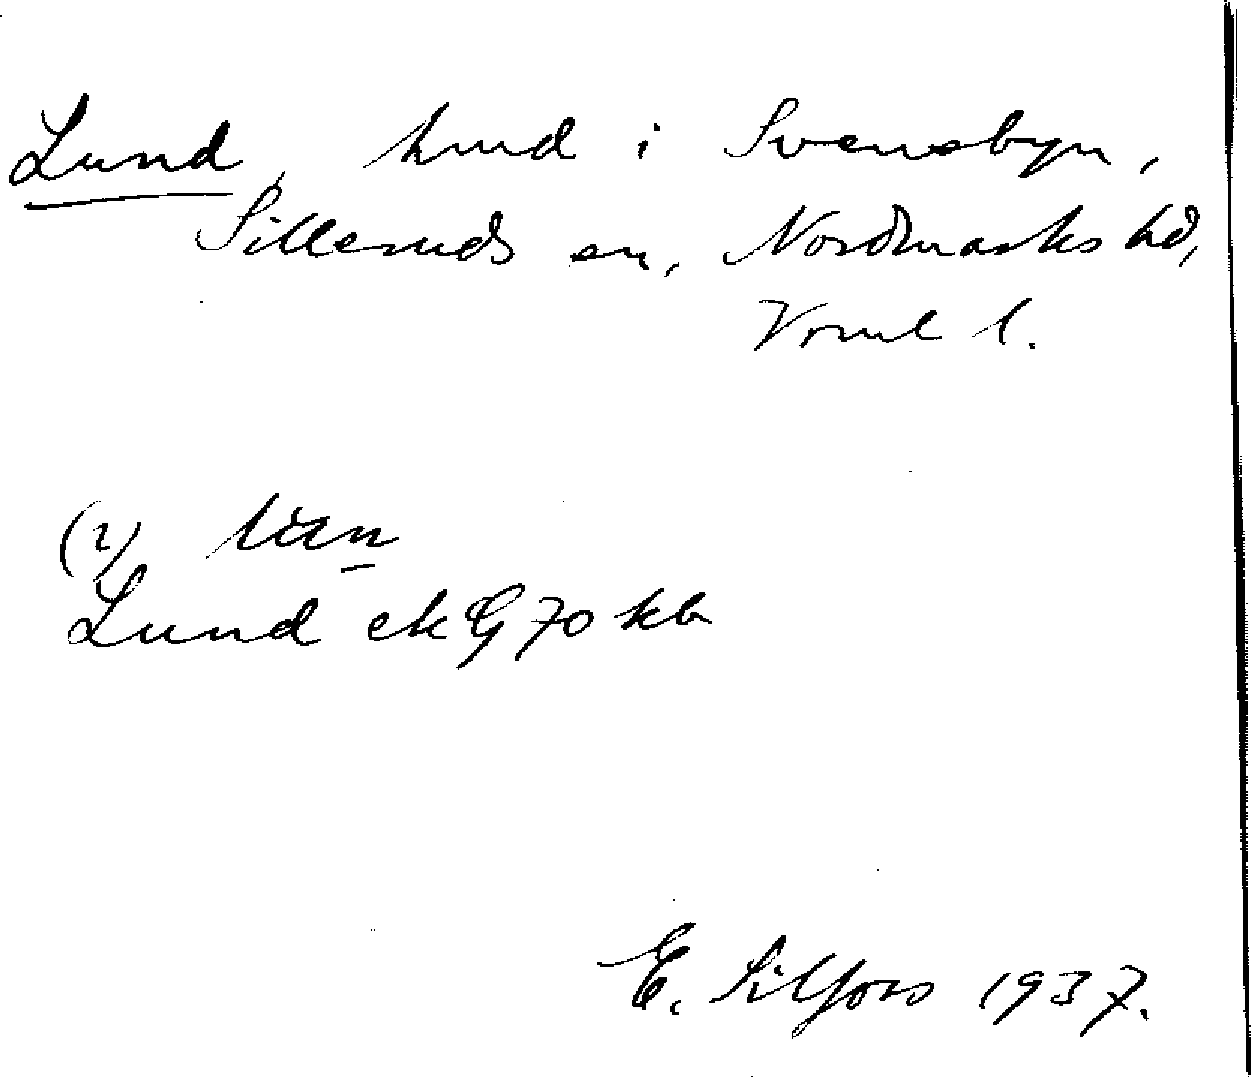 Lund, hmd i Svensbyn,
Silleruds sn, Nordmarks hd,
Vrml l.
(2)
Lund ek G 70 kb
E. Silfors 1937.